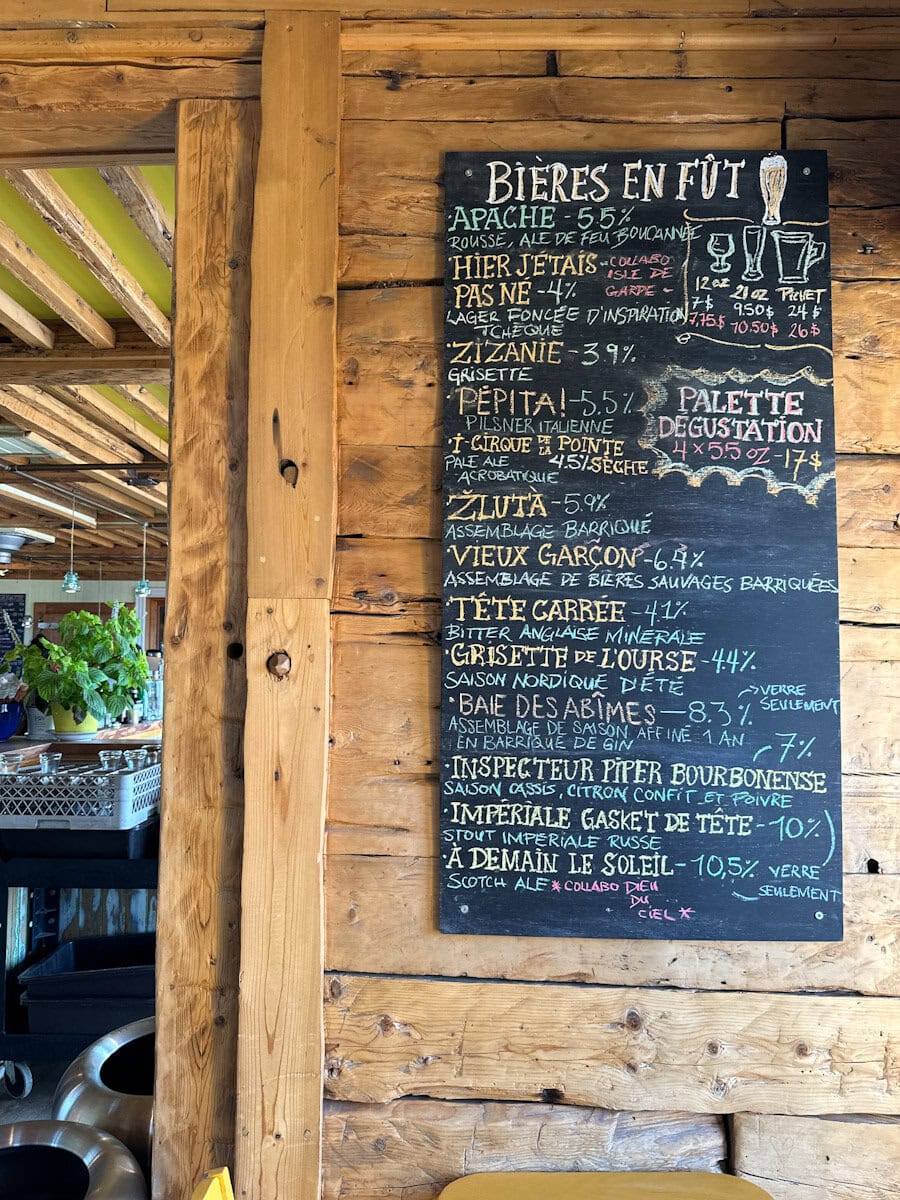 BIÈRES EN FÛT
APACHE - 5.5%
ROUSSE, ALE DE FEU BOUCANNÉE
HIER J'ÉTAIS
PAS NÉ - 4%
COLLABO
ISLE DE
GARDE -
LAGER FONCÉE D'INSPIRATION
TCHÈQUE
12 OZ 20 OZ PICHET
7$ 9.50$ 24$
7,75$ 10.50$ 26$
ZIZANIE - 3.9%
GRISETTE
PÉPITA! - 5.5%
PILSNER ITALIENNE
PALETTE
DÉGUSTATION
4 x 5.5 OZ - 17$
CIRQUE DE LA POINTE
4.5% SÈCHE
PALE ALE
ACROBATIQUE
ŽLUTÀ - 5.9%
ASSEMBLAGE BARRIQUÉ
VIEUX GARÇON - 6.4%
ASSEMBLAGE DE BIÈRES SAUVAGES BARRIQUÉES
TÊTE CARRÉE - 4.1%
BITTER ANGLAISE MINÉRALE
GRISETTE DE L'OURSE - 4.4%
SAISON NORDIQUE D'ÉTÉ
BAIE DES ABÎMES - 8.3%
VERRE
SEULEMENT
ASSEMBLAGE DE SAISON AFFINÉ 1 AN
EN BARRIQUE DE GIN
7%
INSPECTEUR PIPER BOURBONENSE
SAISON CASSIS, CITRON CONFIT ET POIVRE
IMPÉRIALE GASKET DE TÊTE - 10%
STOUT IMPÉRIALE RUSSE
À DEMAIN LE SOLEIL - 10,5%
VERRE
SEULEMENT
SCOTCH ALE *COLLABO DIEU
DU
CIEL*